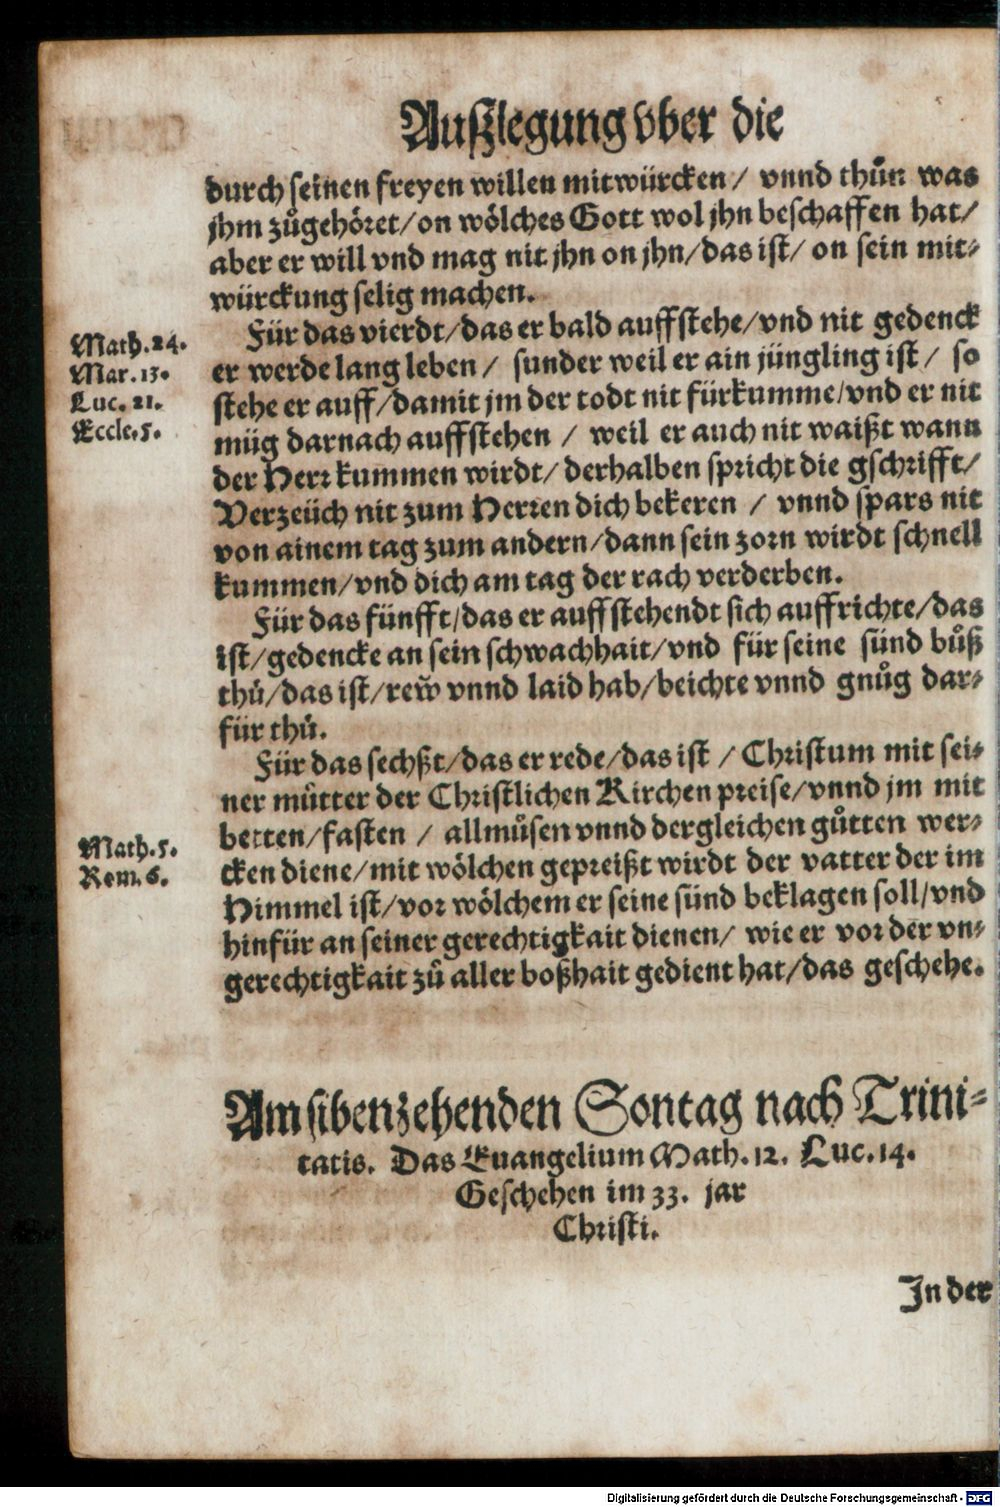 Außlegung vber die
durch seinen freyen willen mitwürcken / vnnd thůn was
jhm zůgehöret/on wölches Gott wol jhn beschaffen hat/
aber er will vnd mag nit jhn on jhn/das ist/ on sein mit-
würckung selig machen.
Für das vierdt/das er bald auffstehe/vnd nit gedenck
er werde lang leben / sunder weil er ain jüngling ist / so
stehe er auff/damit jm der todt nit fürkumme/vnd er nit
müg darnach auffstehen / weil er auch nit waißt wann
der Herr kummen wirdt/ derhalben spricht die gschrifft/
Verzeüch nit zum Herren dich bekeren / vnnd spars nit
von ainem tag zum andern/dann sein zorn wirdt schnell
kummen/vnd dich am tag der rach verderben.
Math.24.
Mar.13.
Luc. 21.
Eccle.5.
Für das fünfft/das er auffstehendt sich auffrichte/das
ist/gedencke an sein schwachhait/vnd für seine sünd bůß
thů/das ist/rew̃ vnnd laid hab/beichte vnnd gnůg dar-
für thů.
Für das sechßt/das er rede/das ist / Christum mit sei-
ner můtter der Christlichen Kirchen preise/vnnd jm mit
betten/fasten / allmůsen vnnd dergleichen gůtten wer-
cken diene/mit wölchen gepreißt wirdt der vatter der im
Himmel ist/vor wölchem er seine sünd beklagen soll/vnd
hinfür an seiner gerechtigkait dienen/ wie er vor der vn-
gerechtigkait zů aller boßhait gedient hat/das geschehe.
Math.5.
Rom.6.
Am sibenzehenden Sontag nach Trini-
tatis. Das Euangelium Math.12. Luc.14.
Geschehen im 33. jar
Christi.
In der
Digitalisierung gefördert durch die Deutsche Forschungsgemeinschaft - DFG